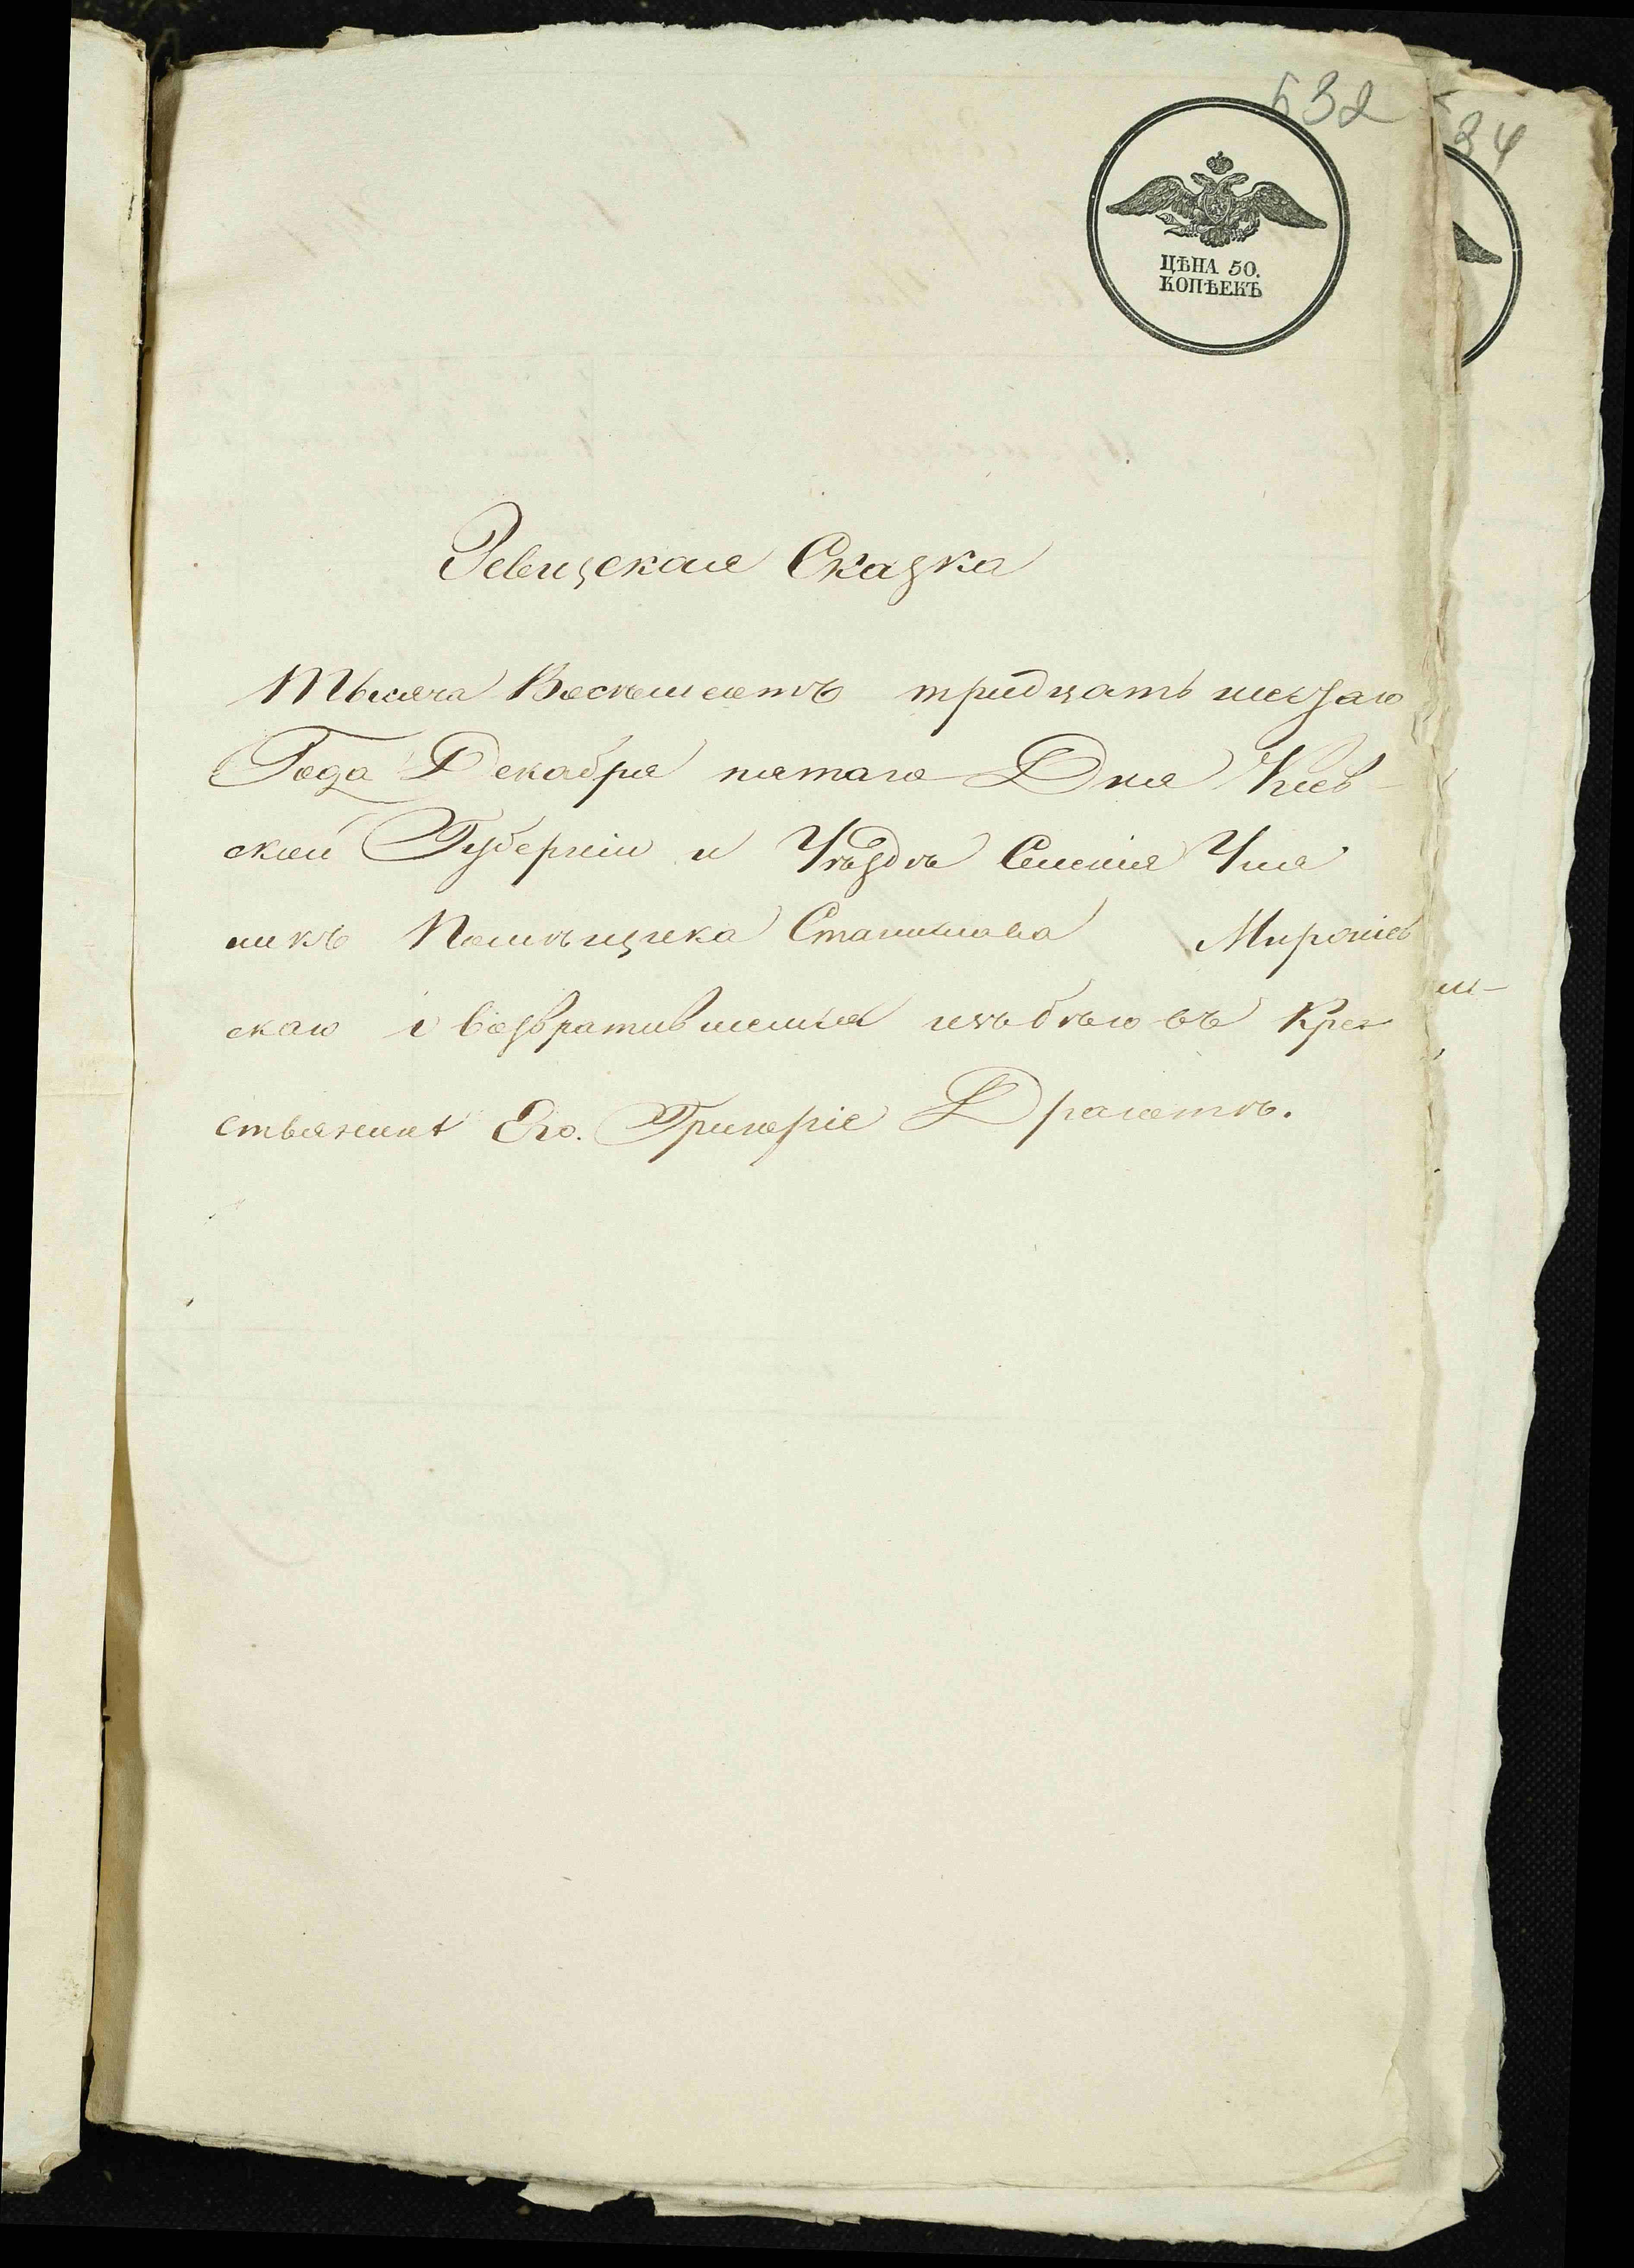 632
34
ЦѢНА 50.
КОПѢЕКЪ
Ревизская Сказка
Тысяча Восемьсотъ тридцать шестаго
Года Декабря пятаго Дня Киев-
ской Губерніи и Уѣзда Селенія
Помѣщика Станислава
скаго о возвратившемся изъ бѣговъ Кре
стьянинѣ Его. Григоріе